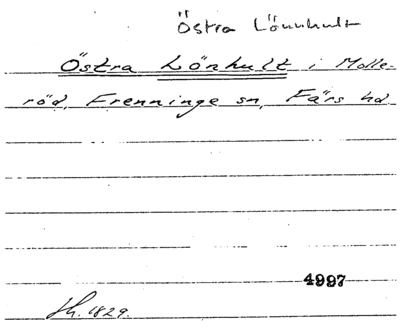 Östra Lönnhult
Östra Lönhult i Molle-
röd, Frenninge sn, Färs hd
4997
Jh. 1829.